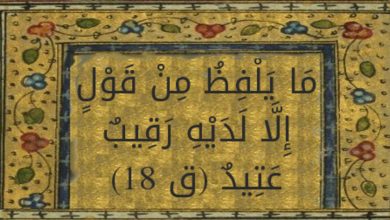 مَا يَلْفِظُ مِنْ قَوْلٍ
إِلَّا لَدَيْهِ رَقِيبٌ
عَتِيدٌ (ق 18)